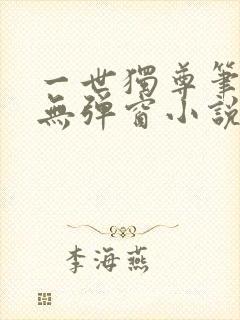 一世獨尊筆
無彈窗小說
李海燕